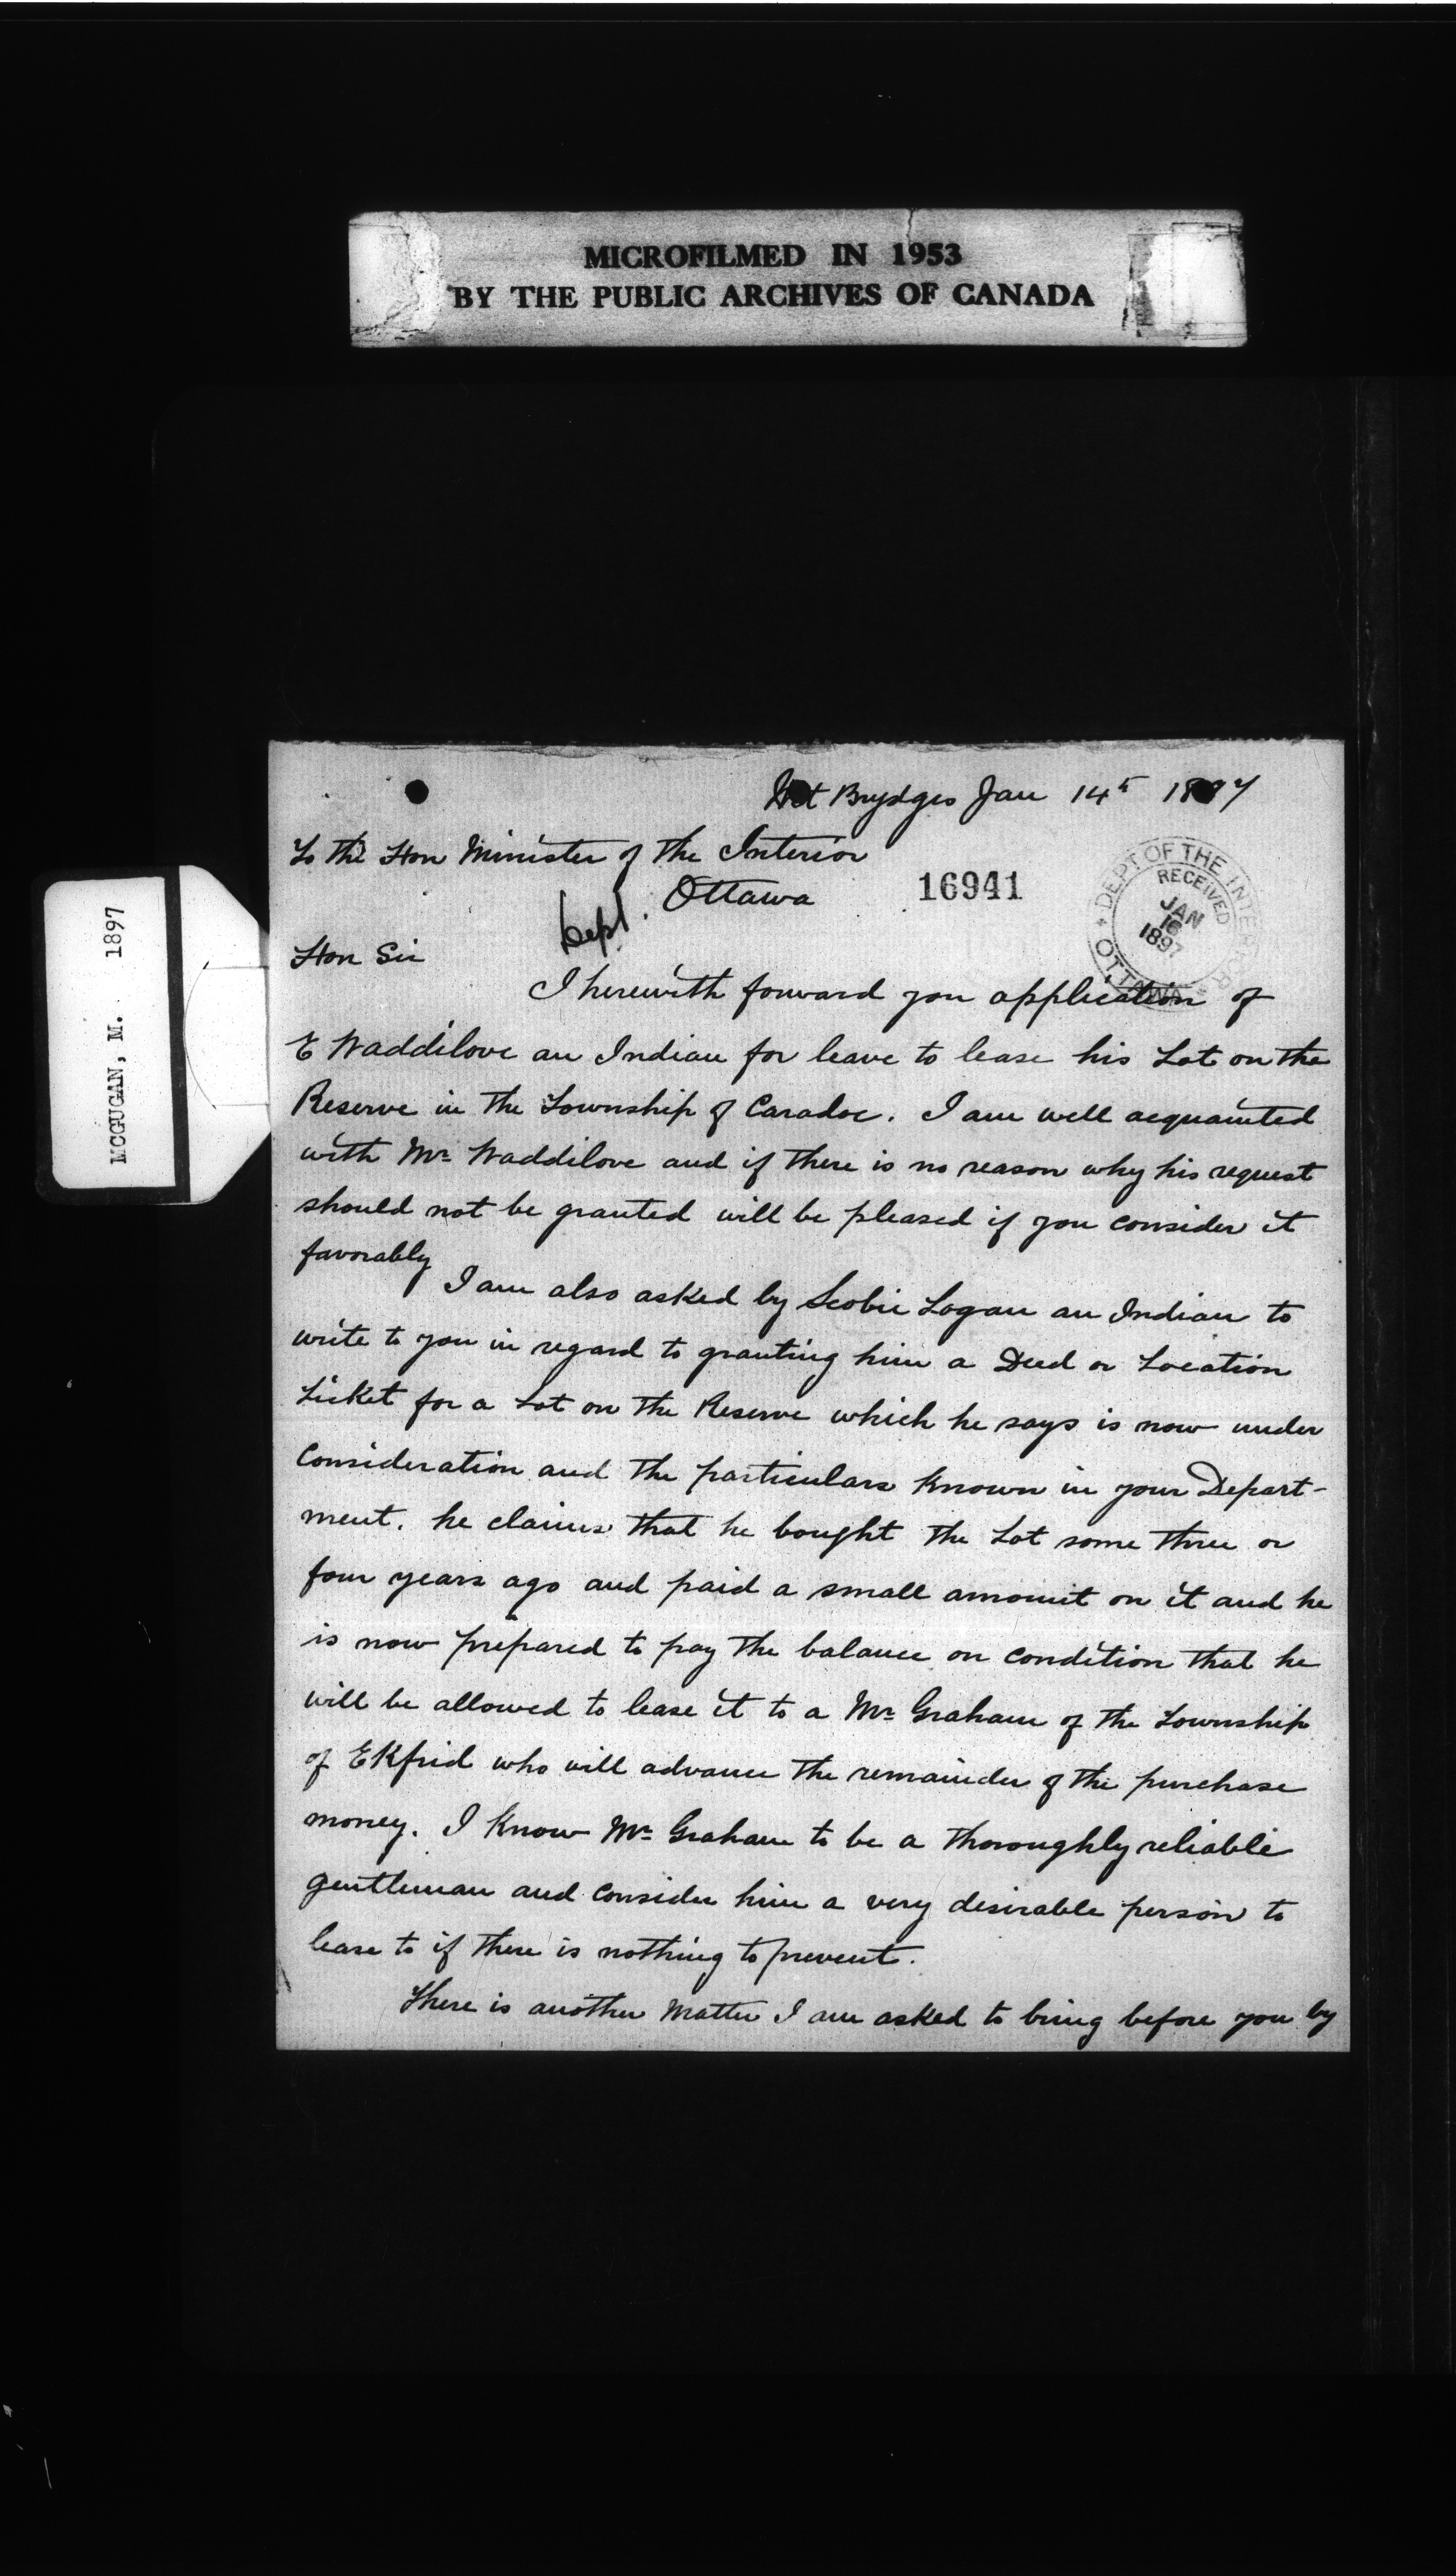 MICROFILMED IN 1953
BY THE PUBLIC ARCHIVES OF CANADA
MCGUGAN, M. 1897
Mt Brydges Jan 14th 1897
To the Hon Minister of the Interior
Ottawa
16941
DEPT OF THE INTERIOR
RECEIVED
JAN
16
1897
OTTAWA
Dept.
Hon Sir
I herewith forward you application of
E Waddilove an Indian for leave to lease his Lot on the
Reserve in the Township of Caradoc. I am well acquainted
with Mr Waddilove and if there is no reason why his request
should not be granted will be pleased if you consider it
favorably
I am also asked by Scobie Logan an Indian to
write to you in regard to granting him a Deed or Location
Ticket for a Lot on the Reserve which he says is now under
Consideration and the particulars known in your Depart-
ment. he claims that he bought the Lot some three or
four years ago and paid a small amount on it and he
is now prepared to pay the balance on condition that he
will be allowed to lease it to a Mr Graham of the Township
of Ekfrid who will advance the remainder of the purchase
money. I know Mr Graham to be a thoroughly reliable
gentleman and consider him a very desirable person to
lease to if there is nothing to prevent.
There is another matter I am asked to bring before you by